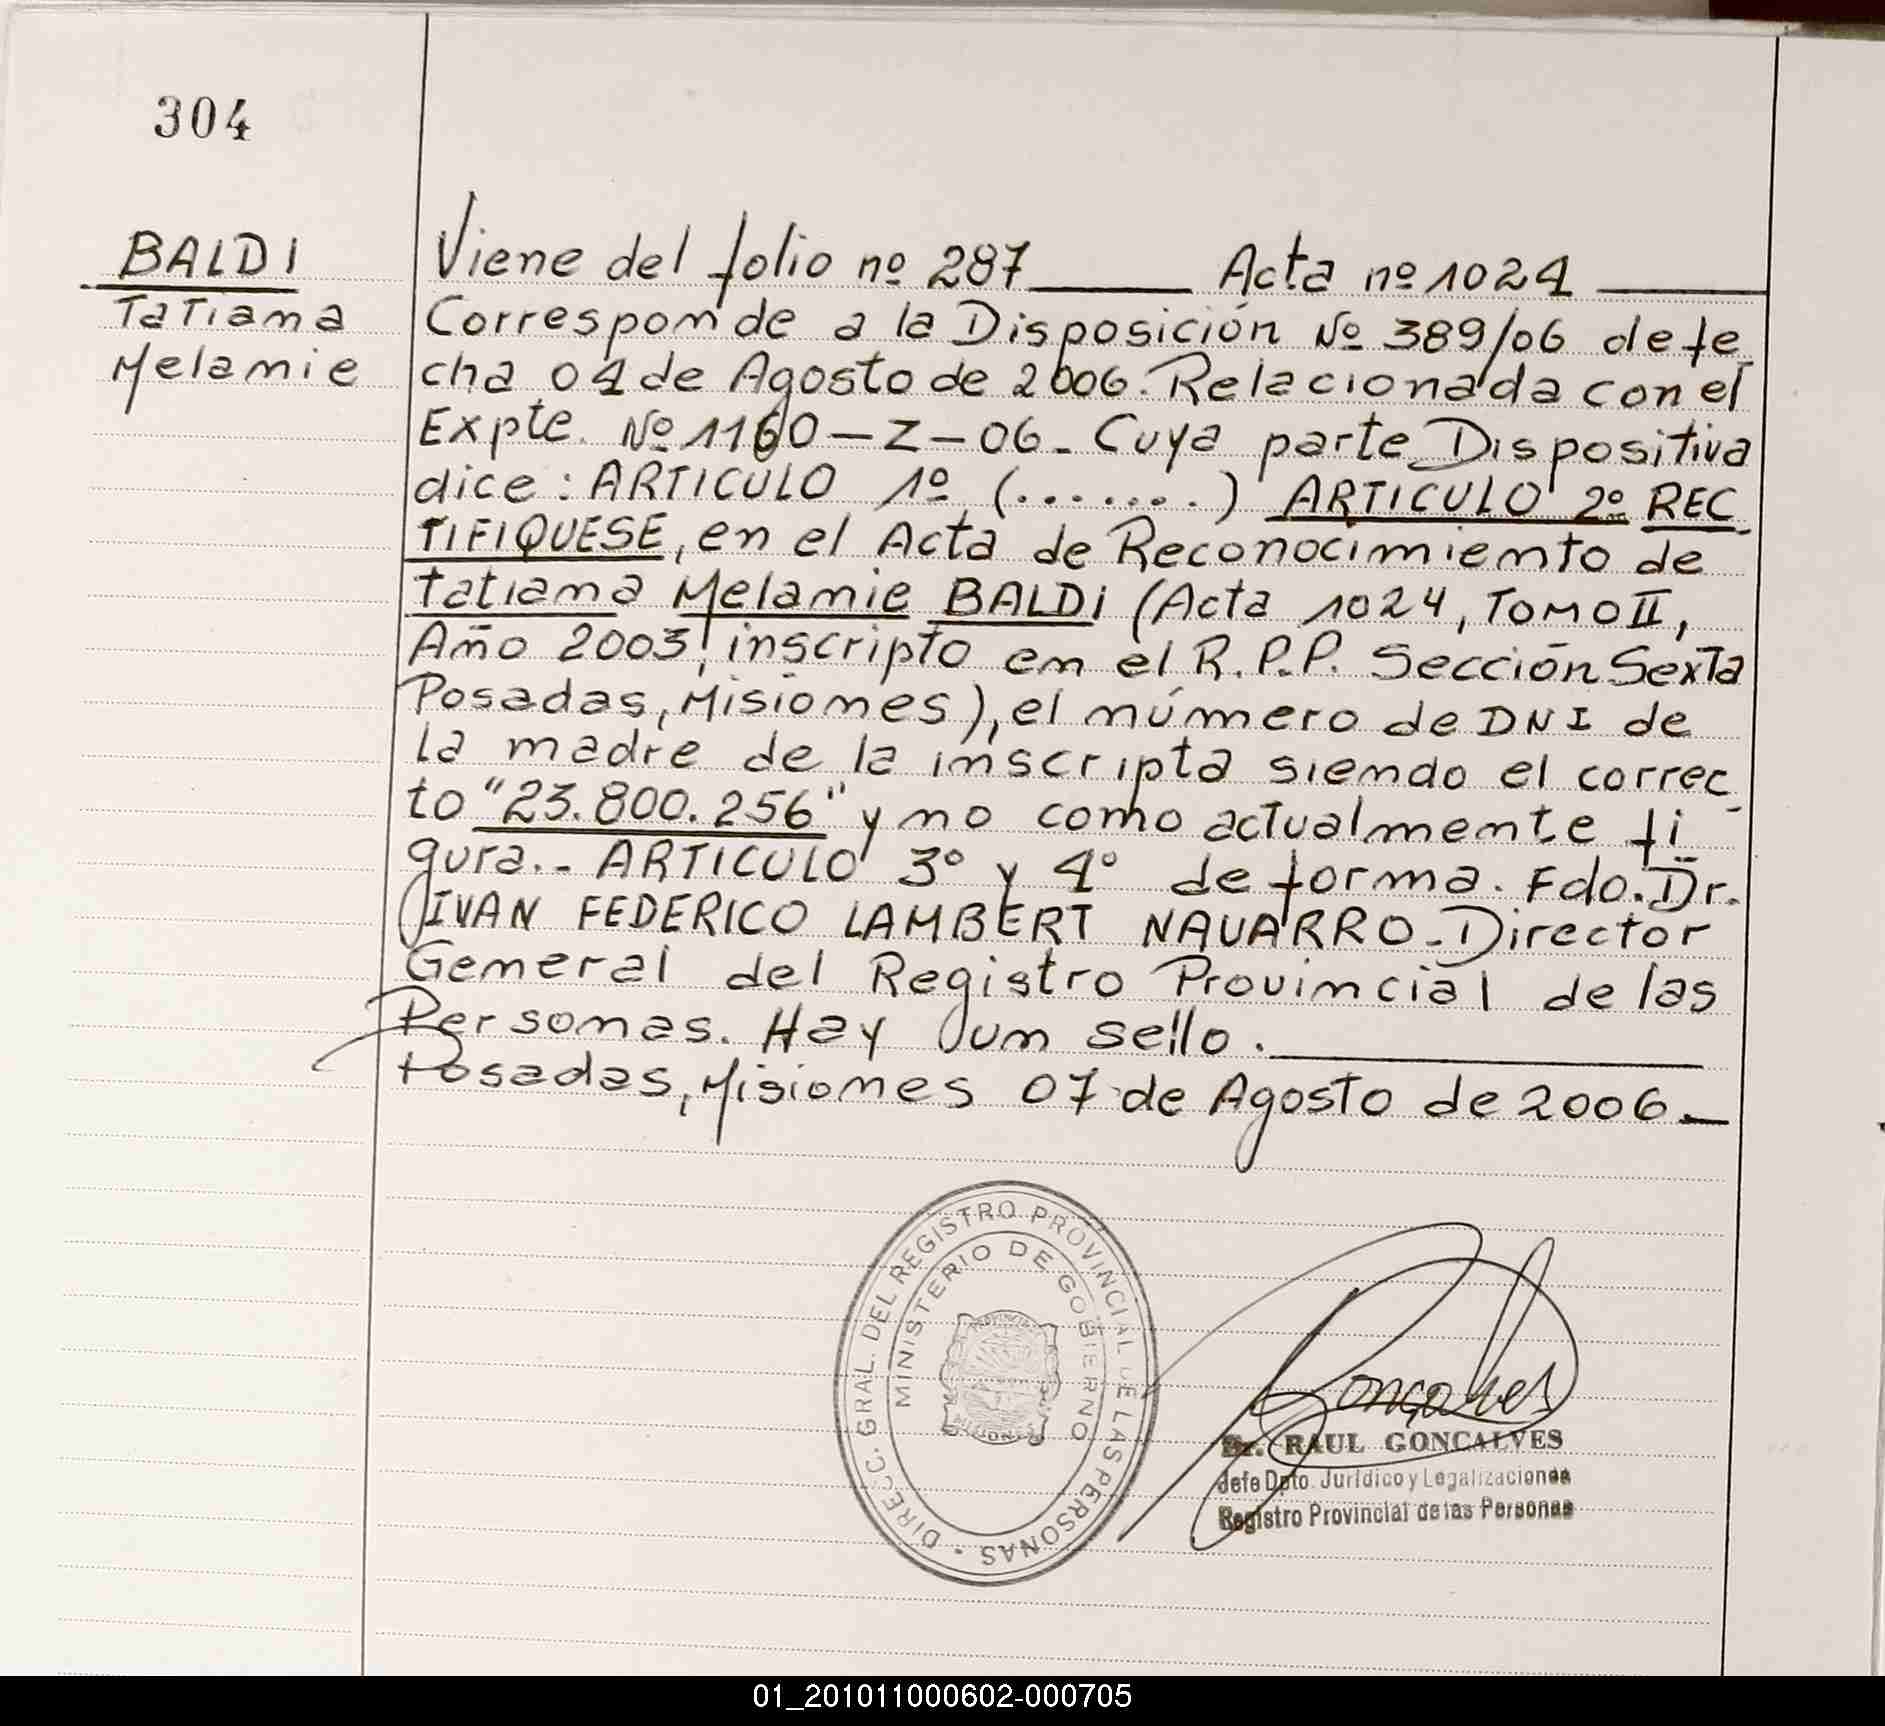 304
BALDI
Tatiana
Melanie
Viene del folio nº 287 Acta nº 1024
Corresponde a la Disposición Nº 389/06 de fe
cha 04 de Agosto de 2006. Relacionada con el
Expte. Nº 1160-Z-06. Cuya parte Dispositiva
dice: ARTICULO 1º (.......) ARTICULO 2º REC
TIFIQUESE, en el Acta de Reconocimiento de
Tatiana Melanie BALDI (Acta 1024, TOMO II,
Año 2003, inscripto en el R.P.P. Sección Sexta
Posadas, Misiones), el número de DNI de
la madre de la inscripta siendo el correc
to "23.800.256" y no como actualmente fi
gura.- ARTICULO 3º y 4º de forma. Fdo. Dr.
IVAN FEDERICO LAMBERT NAVARRO. Director
General del Registro Provincial de las
Personas. Hay un sello.
Posadas, Misiones 07 de Agosto de 2006.-
DIRECC. GRAL. DEL REGISTRO PROVINCIAL DE LAS PERSONAS
MINISTERIO DE GOBIERNO
PROVINCIA
MISIONES
Gonçalves
Dr. RAUL GONCALVES
Jefe Dpto. Jurídico y Legalizaciones
Registro Provincial de las Personas
01_201011000602-000705